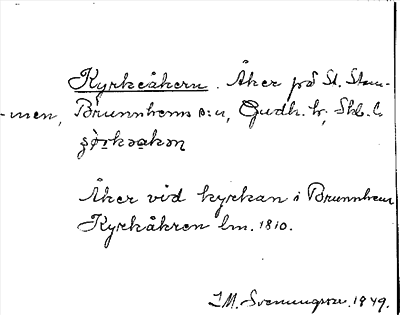 Kyrkeåkern. Åker på St. Stom-
-men, Brunnhems s:n, Gudh. h., Skb. l.
Åker vid kyrkan i Brunnhem
Kyrkåkren lm. 1810.
I.M. Svenungsson. 1949.